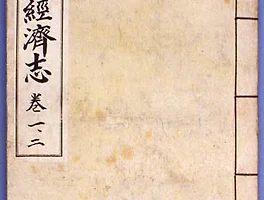 經濟志
卷一、二